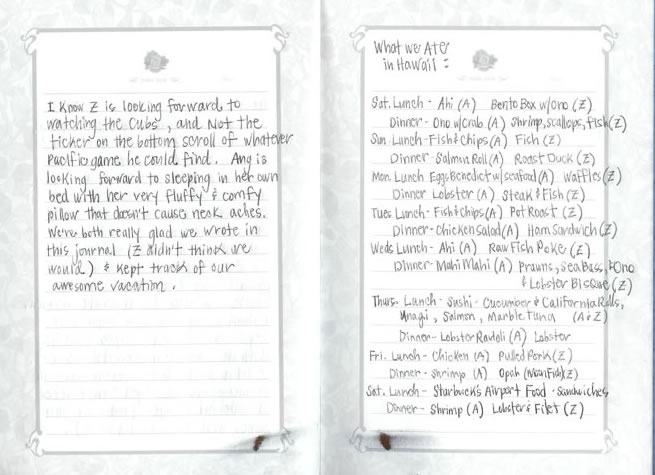 I know Z is looking forward to
watching the Cubs, and Not the
ticker on the bottom scroll of whatever
Pacific game he could find. Ang is
looking forward to sleeping in her own
bed with her very fluffy & comfy
pillow that doesn't cause neck aches.
We're both really glad we wrote in
this journal (Z didn't think we
would) & kept track of our
awesome vacation.
What we Ate
in Hawaii:
Sat. Lunch - Ahi (A) Bento Box w/Ono (Z)
Dinner - Ono w/Crab (A) Shrimp, scallops, fish (Z)
Sun Lunch - Fish & Chips (A) Fish (Z)
Dinner - Salmon Roll (A) Roast Duck (Z)
Mon. Lunch Eggs Benedict w/seafood (A) Waffles (Z)
Dinner Lobster (A) Steak & Fish (Z)
Tues Lunch - Fish & Chips (A) Pot Roast (Z)
Dinner - Chicken Salad (A) Ham Sandwich (Z)
Weds Lunch - Ahi (A) Raw Fish Poke (Z)
Dinner - Mahi Mahi (A) Prawns, Sea Bass, & Ono
& Lobster Bisque (Z)
Thurs. Lunch - Sushi - Cucumber & California Rolls,
Unagi, Salmon, Marble Tuna (A & Z)
Dinner - Lobster Ravioli (A) Lobster
Fri. Lunch - Chicken (A) Pulled Pork (Z)
Dinner - Shrimp (A) Opah (Moon Fish) (Z)
Sat. Lunch - Starbuck's Airport Food - Sandwiches
Dinner - Shrimp (A) Lobster & Filet (Z)